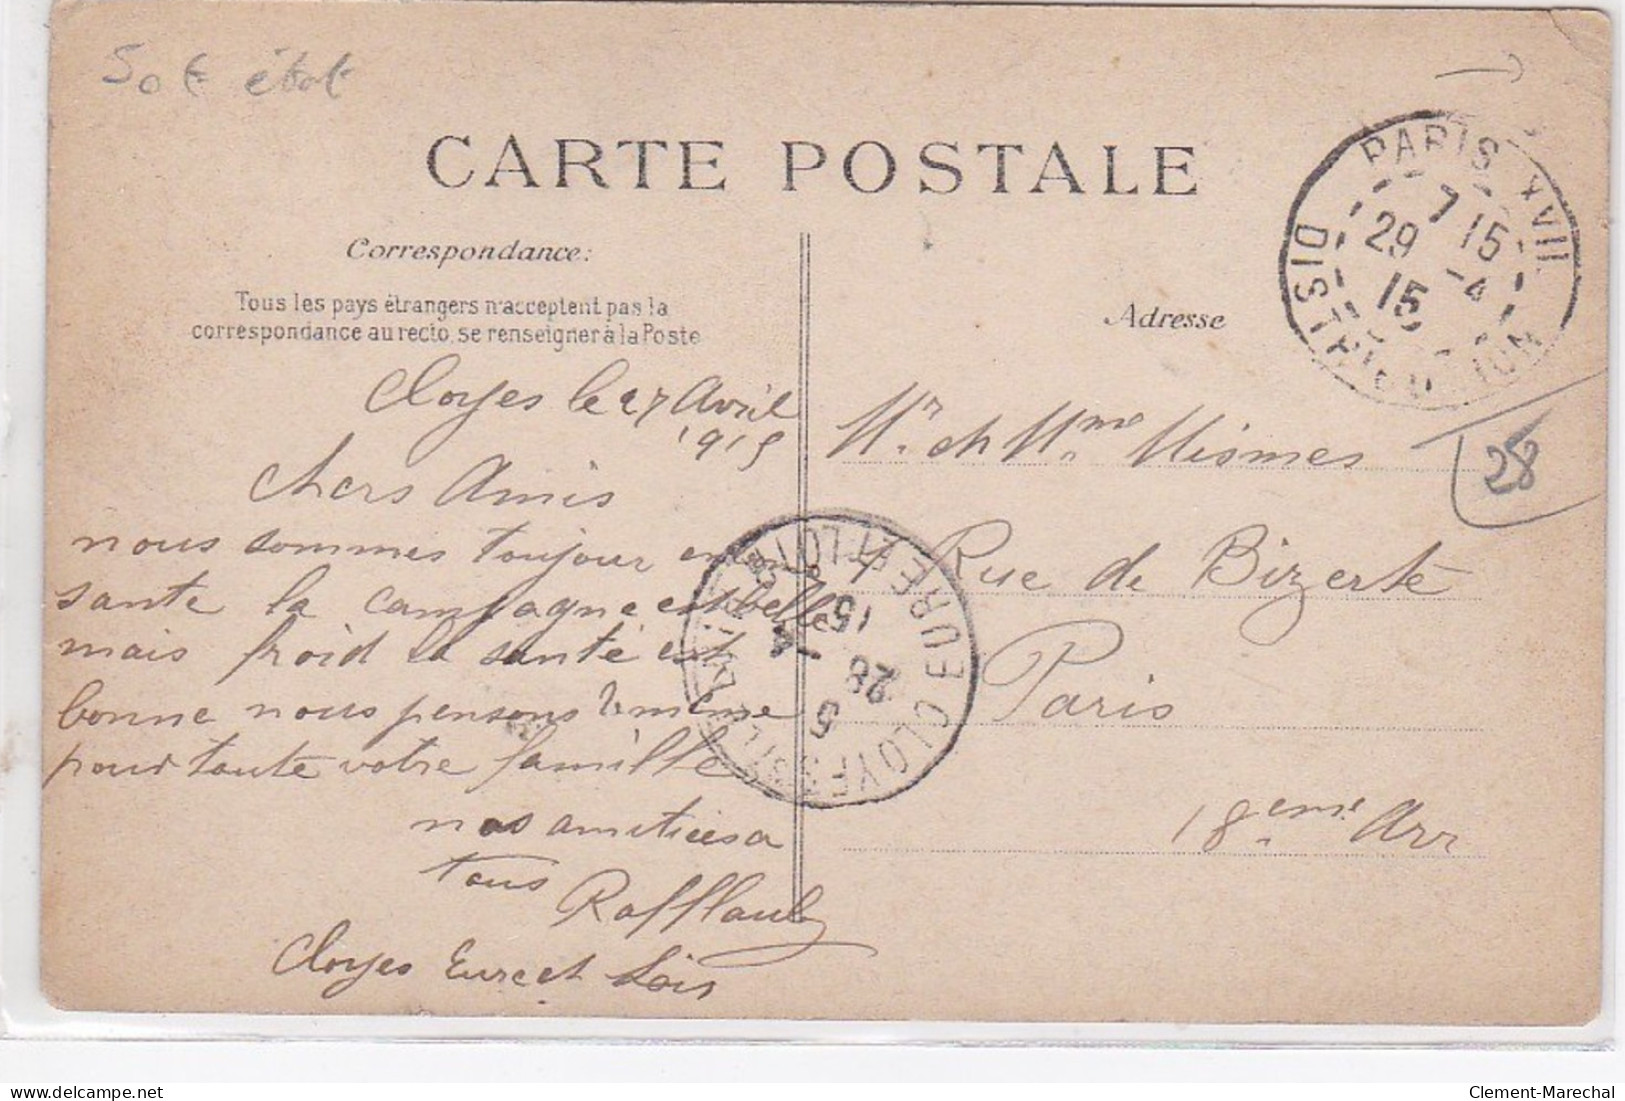 50 € état
CARTE POSTALE
Correspondance:
Tous les pays étrangers n'acceptent pas la
correspondance au recto, se renseigner à la Poste
Cloyes le 27 Avril
1915
Chers Amis
nous sommes toujour en
sante la campagne est belle
mais froid la santé est
bonne nous pensons de même
pour toute votre famille
nos amitiées a
tous
Raffault
Cloyes Eure et Loir
Adresse
Mr et Mme Mismes
4 Rue de Bizerte
Paris
18.eme Arr
28
PARIS XVII
DISTRIBUTION
7 15
29 -4
15
CLOYES
EURE ET LOIR
5
28 -4
15
delcampe.net
Clement-Marechal